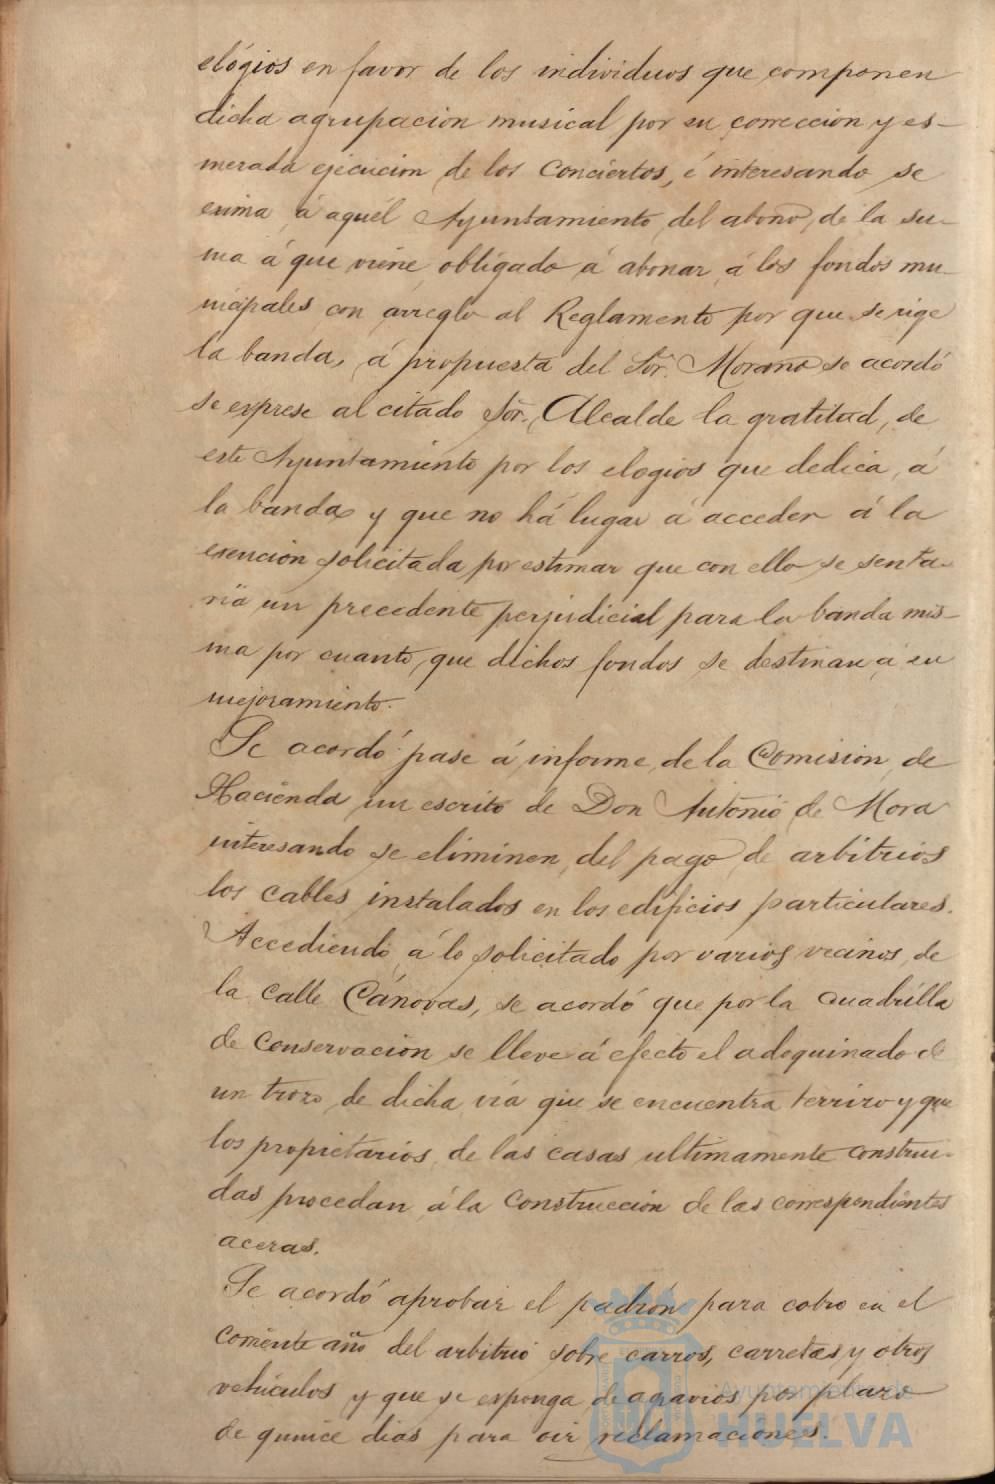 elógios en favor de los individuos que componen
dicha agrupacion musical por su correccion y es-
merada ejecucion de los conciertos, é interesando se
exima á aquél Ayuntamiento del abono de la su-
ma á que viene obligado á abonar á los fondos mu-
nicipales con arreglo al Reglamento por que se rige
la banda, á propuesta del Sór. Moraño se acordó
se exprese al citado Sór. Alcalde la gratitud de
este Ayuntamiento por los elogios que dedica á
la banda y que no há lugar á acceder á la
exención solicitada por estimar que con ello se senta-
ria un precedente perjudicial para la banda mis-
ma por cuanto que dichos fondos se destinan á su
mejoramiento.
Se acordó pase á informe de la Comision de
Hacienda un escrito de Don Antonio de Mora
interesando se eliminen del pago de arbitrios
los cables instalados en los edificios particulares.
Accediendo á lo solicitado por varios vecinos de
la calle Cánovas, se acordó que por la cuadrilla
de conservacion se lleve á efecto el adoquinado de
un trozo de dicha via que se encuentra terrizo y que
los propietarios de las casas ultimamente construi-
das procedan á la construccion de las correspondientes
aceras.
Se acordó aprobar el padrón para cobro en el
corriente año del arbitrio sobre carros, carretas y otros
vehiculos y que se exponga de agravios por plazo
de quince dias para oir reclamaciones.
Ayuntamiento de
HUELVA